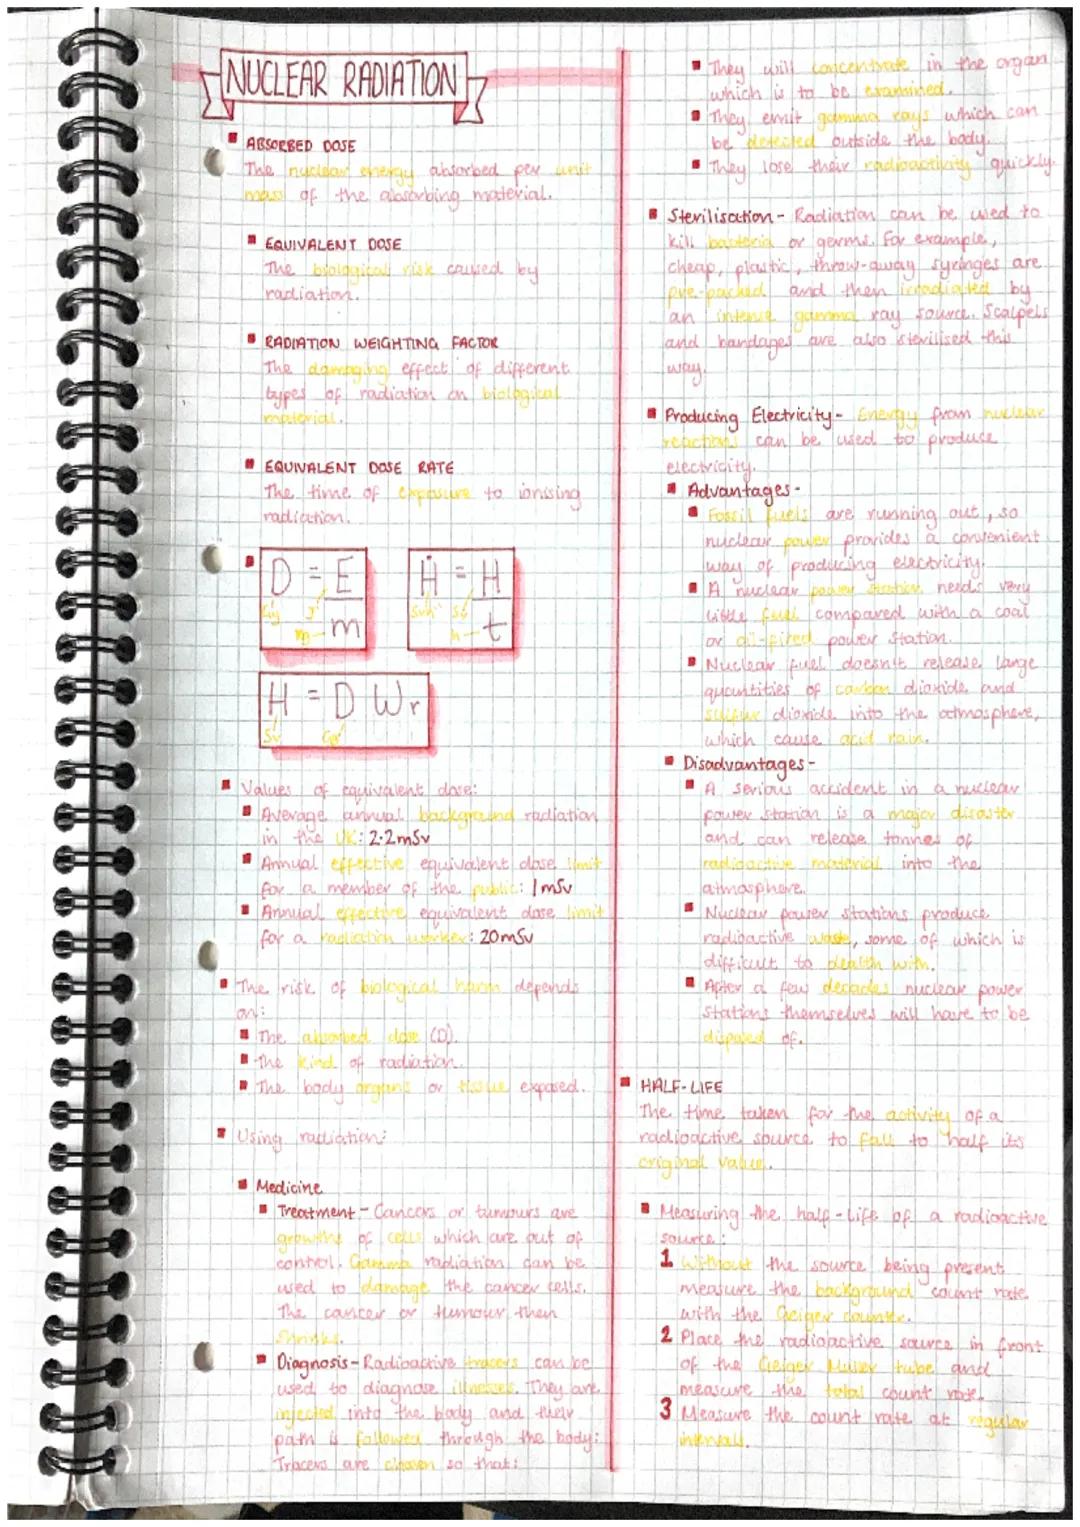 NUCLEAR RADIATION
ABSORBED DOSE
The nuclear energy absorbed per unit
mass of the absorbing material.
EQUIVALENT DOSE
The biological risk caused by
radiation.
RADIATION WEIGHTING FACTOR
The damaging effect of different
types of radiation on biological
material.
EQUIVALENT DOSE RATE
The time of exposure to ionising
radiation.
D = E
m
Ḣ = H
t
H = D Wr
Sv Gy
Values of equivalent dose:
Average annual background radiation
in the UK: 2.2mSv
Annual effective equivalent dose limit
for a member of the public: 1mSv
Annual effective equivalent dose limit
for a radiation worker: 20mSv
The risk of biological harm depends
on:
The absorbed dose (D).
The kind of radiation.
The body organs or tissue exposed.
Using radiation:
Medicine
Treatment - Cancers or tumours are
growths of cells which are out of
control. Gamma radiation can be
used to damage the cancer cells.
The cancer or tumour then
shrinks.
Diagnosis - Radioactive tracers can be
used to diagnose illnesses. They are
injected into the body and their
path is followed through the body.
Tracers are chosen so that:
They will concentrate in the organ
which is to be examined.
They emit gamma rays which can
be detected outside the body.
They lose their radioactivity quickly.
Sterilisation - Radiation can be used to
kill bacteria or germs. For example,
cheap, plastic, throw-away syringes are
pre-packed and then irradiated by
an intense gamma ray source. Scalpels
and bandages are also sterilised this
way.
Producing Electricity - Energy from nuclear
reactions can be used to produce
electricity.
Advantages -
Fossil fuels are running out, so
nuclear power provides a convenient
way of producing electricity.
A nuclear power station needs very
little fuel compared with a coal
or oil-fired power station.
Nuclear fuel doesn't release large
quantities of carbon dioxide and
sulfur dioxide into the atmosphere,
which cause acid rain.
Disadvantages -
A serious accident in a nuclear
power station is a major disaster
and can release tonnes of
radioactive material into the
atmosphere.
Nuclear power stations produce
radioactive waste, some of which is
difficult to dealth with.
After a few decades nuclear power
stations themselves will have to be
disposed of.
HALF-LIFE
The time taken for the activity of a
radioactive source to fall to half its
original value.
Measuring the half-life of a radioactive
source:
1 Without the source being present
measure the background count rate
with the Geiger counter.
2 Place the radioactive source in front
of the Geiger Muller tube and
measure the total count rate.
3 Measure the count rate at regular
intervals.